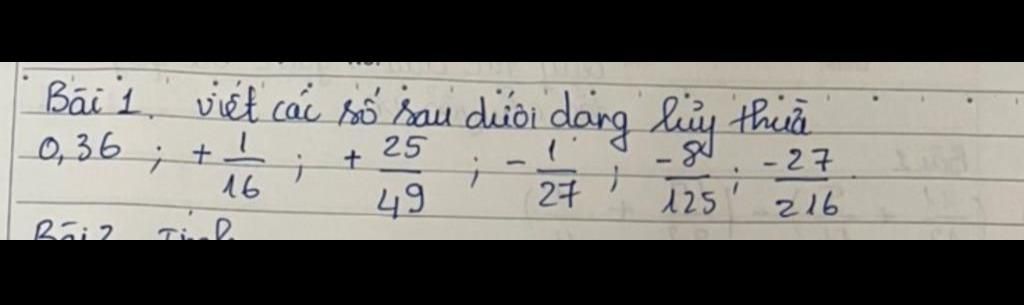 Bài 1. viết các số sau dưới dạng lũy thừa
0,36 ; + 1/16 ; + 25/49 ; - 1/27 ; -8/125 ; -27/216
Bài 2